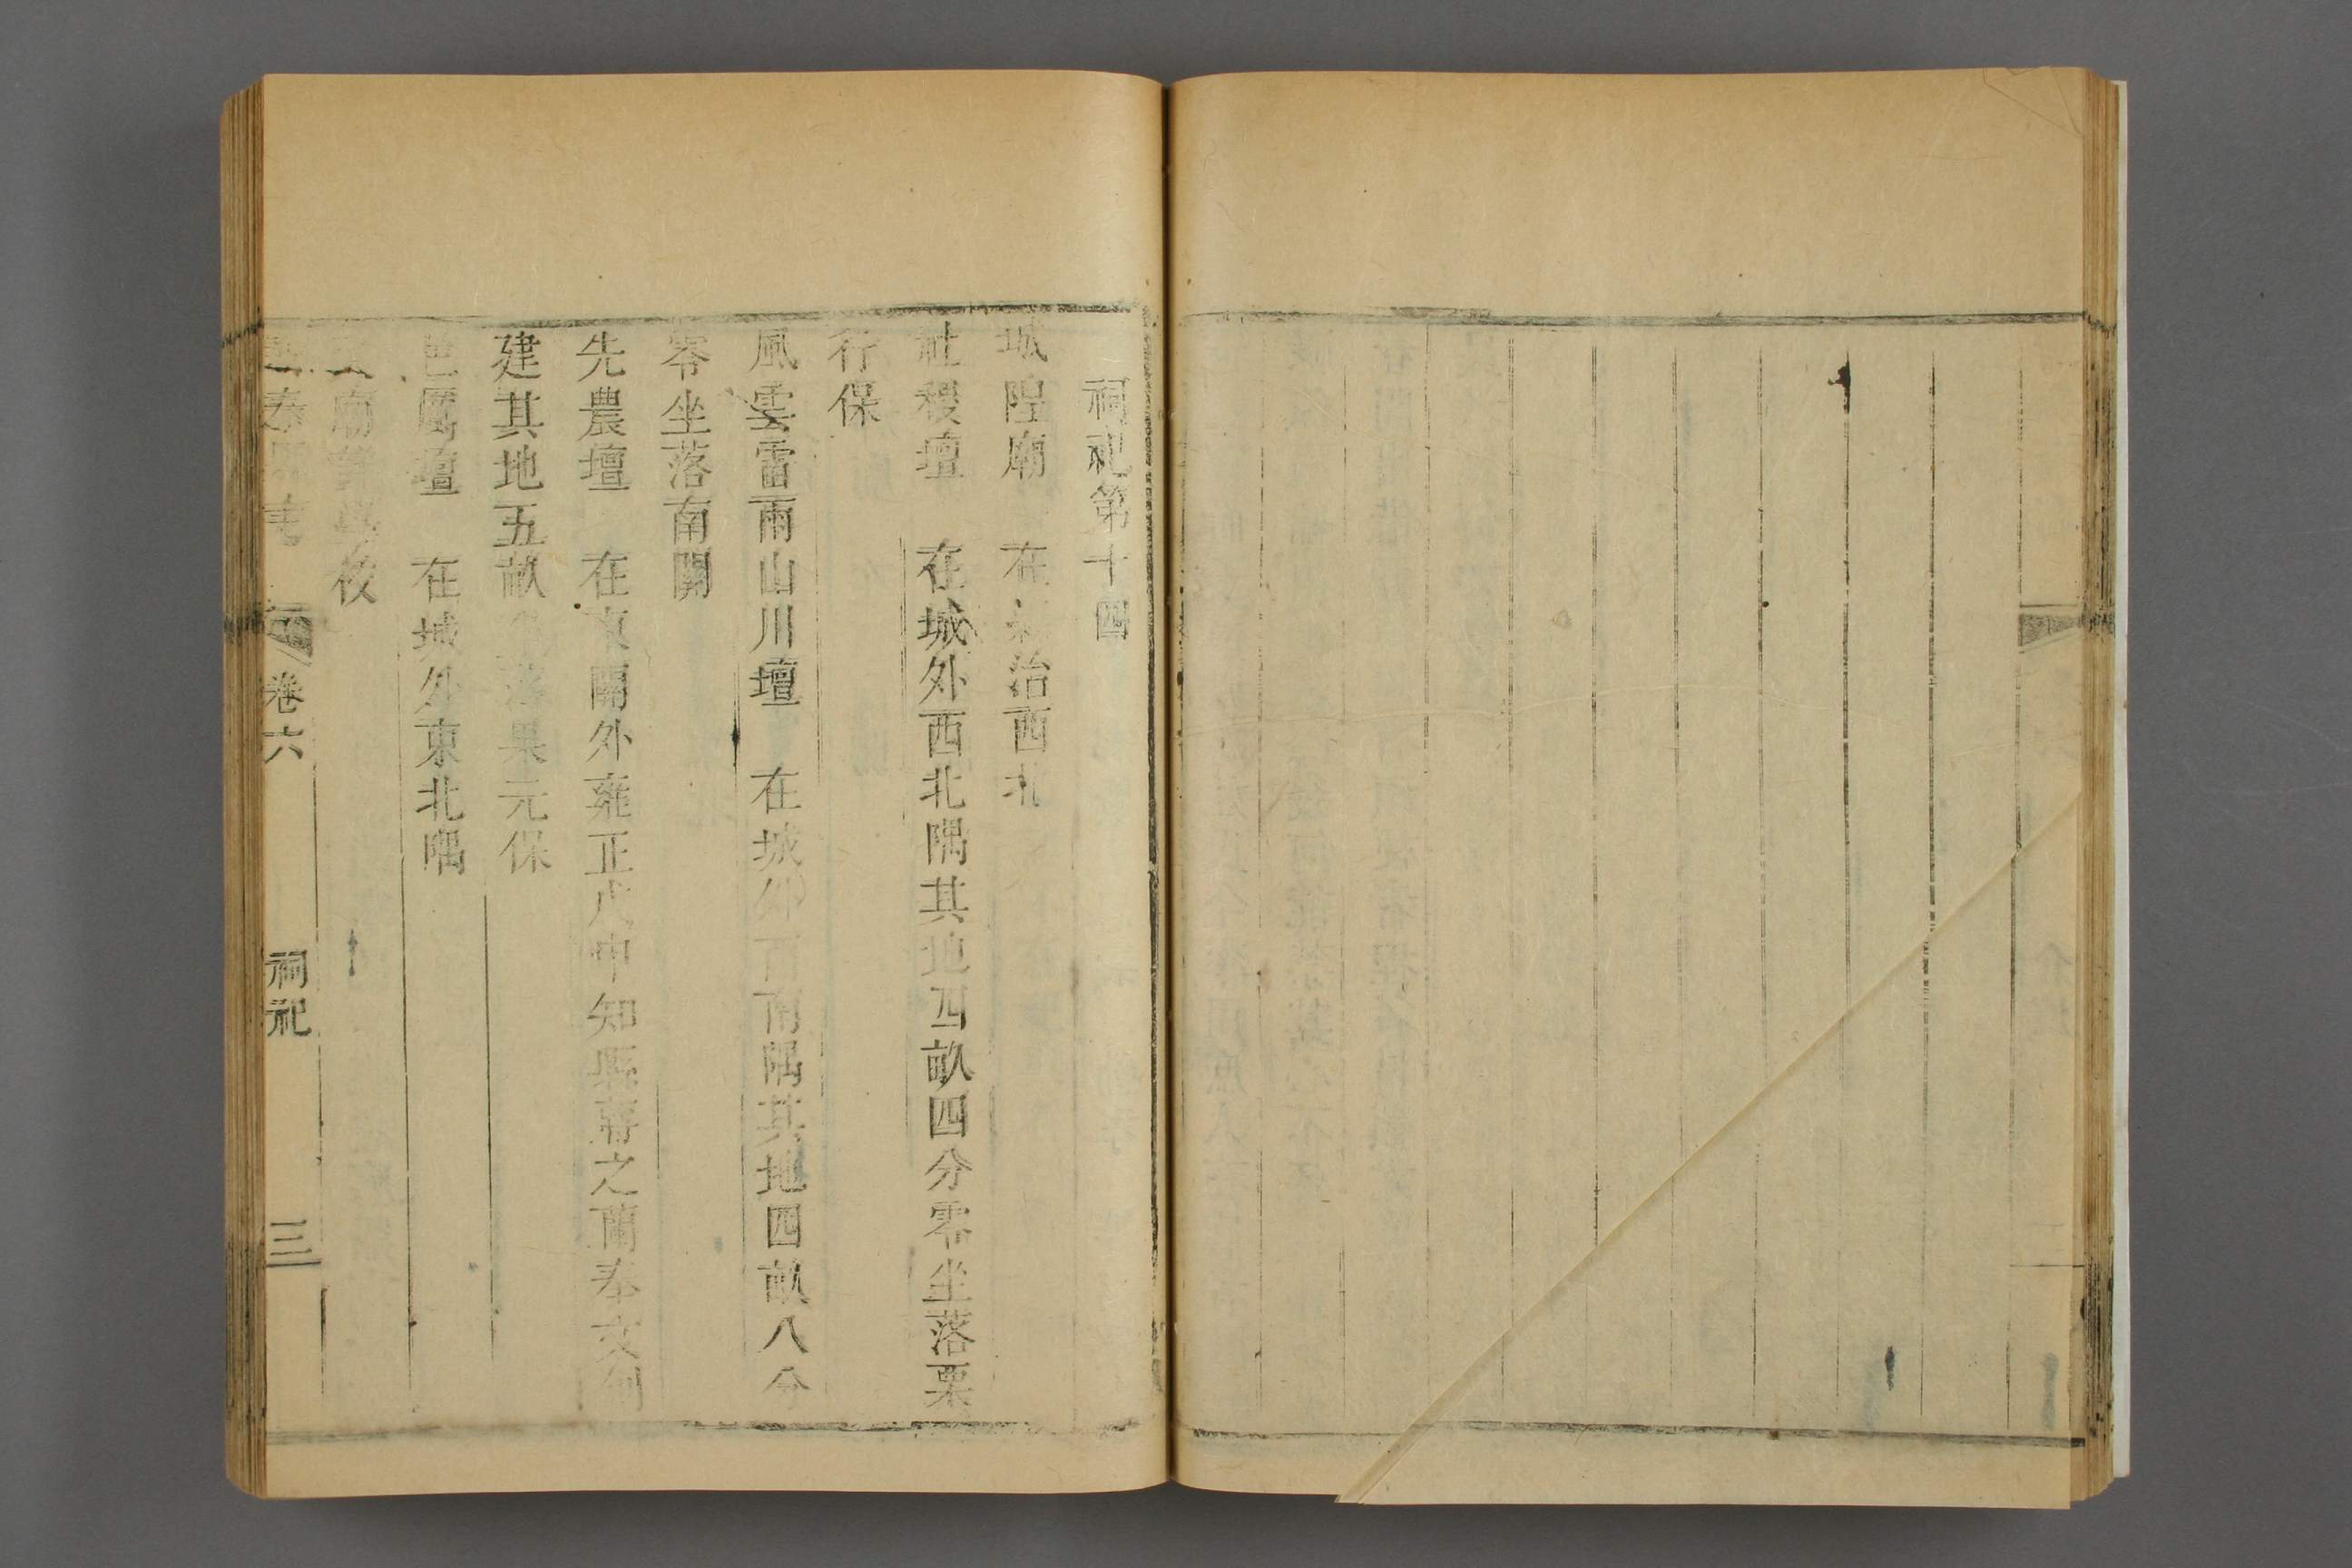 祠祀第十四
城隍廟　在　治西北
社稷壇　在城外西北隅其地四畝四分零坐落栗
行保
風雲雷雨山川壇　在城外西南隅其地四畝八分
零坐落南關
先農壇　在東關外雍正戊申知縣蔣之蘭奉文創
建其地五畝　落果元保
邑厲壇　在城外東北隅
廟　　校
卷六　祠祀　三